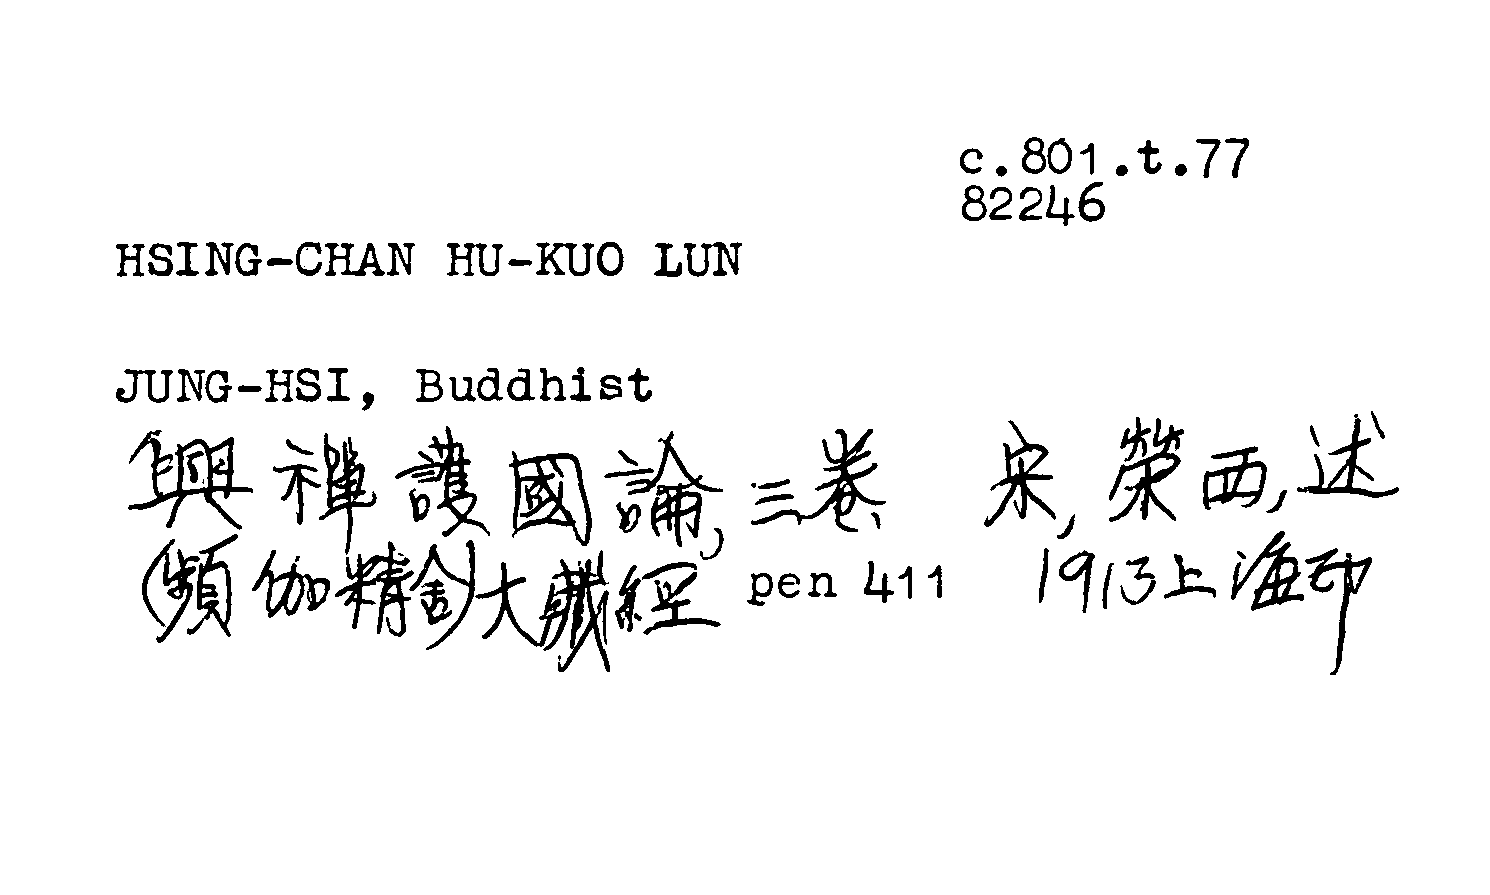 c.801.t.77
82246
HSING-CHAN HU-KUO LUN
JUNG-HSI, Buddhist
興禪護國論, 三卷 宋, 榮西, 述
(頻伽精舍)大藏經 pen 411 1913上海印